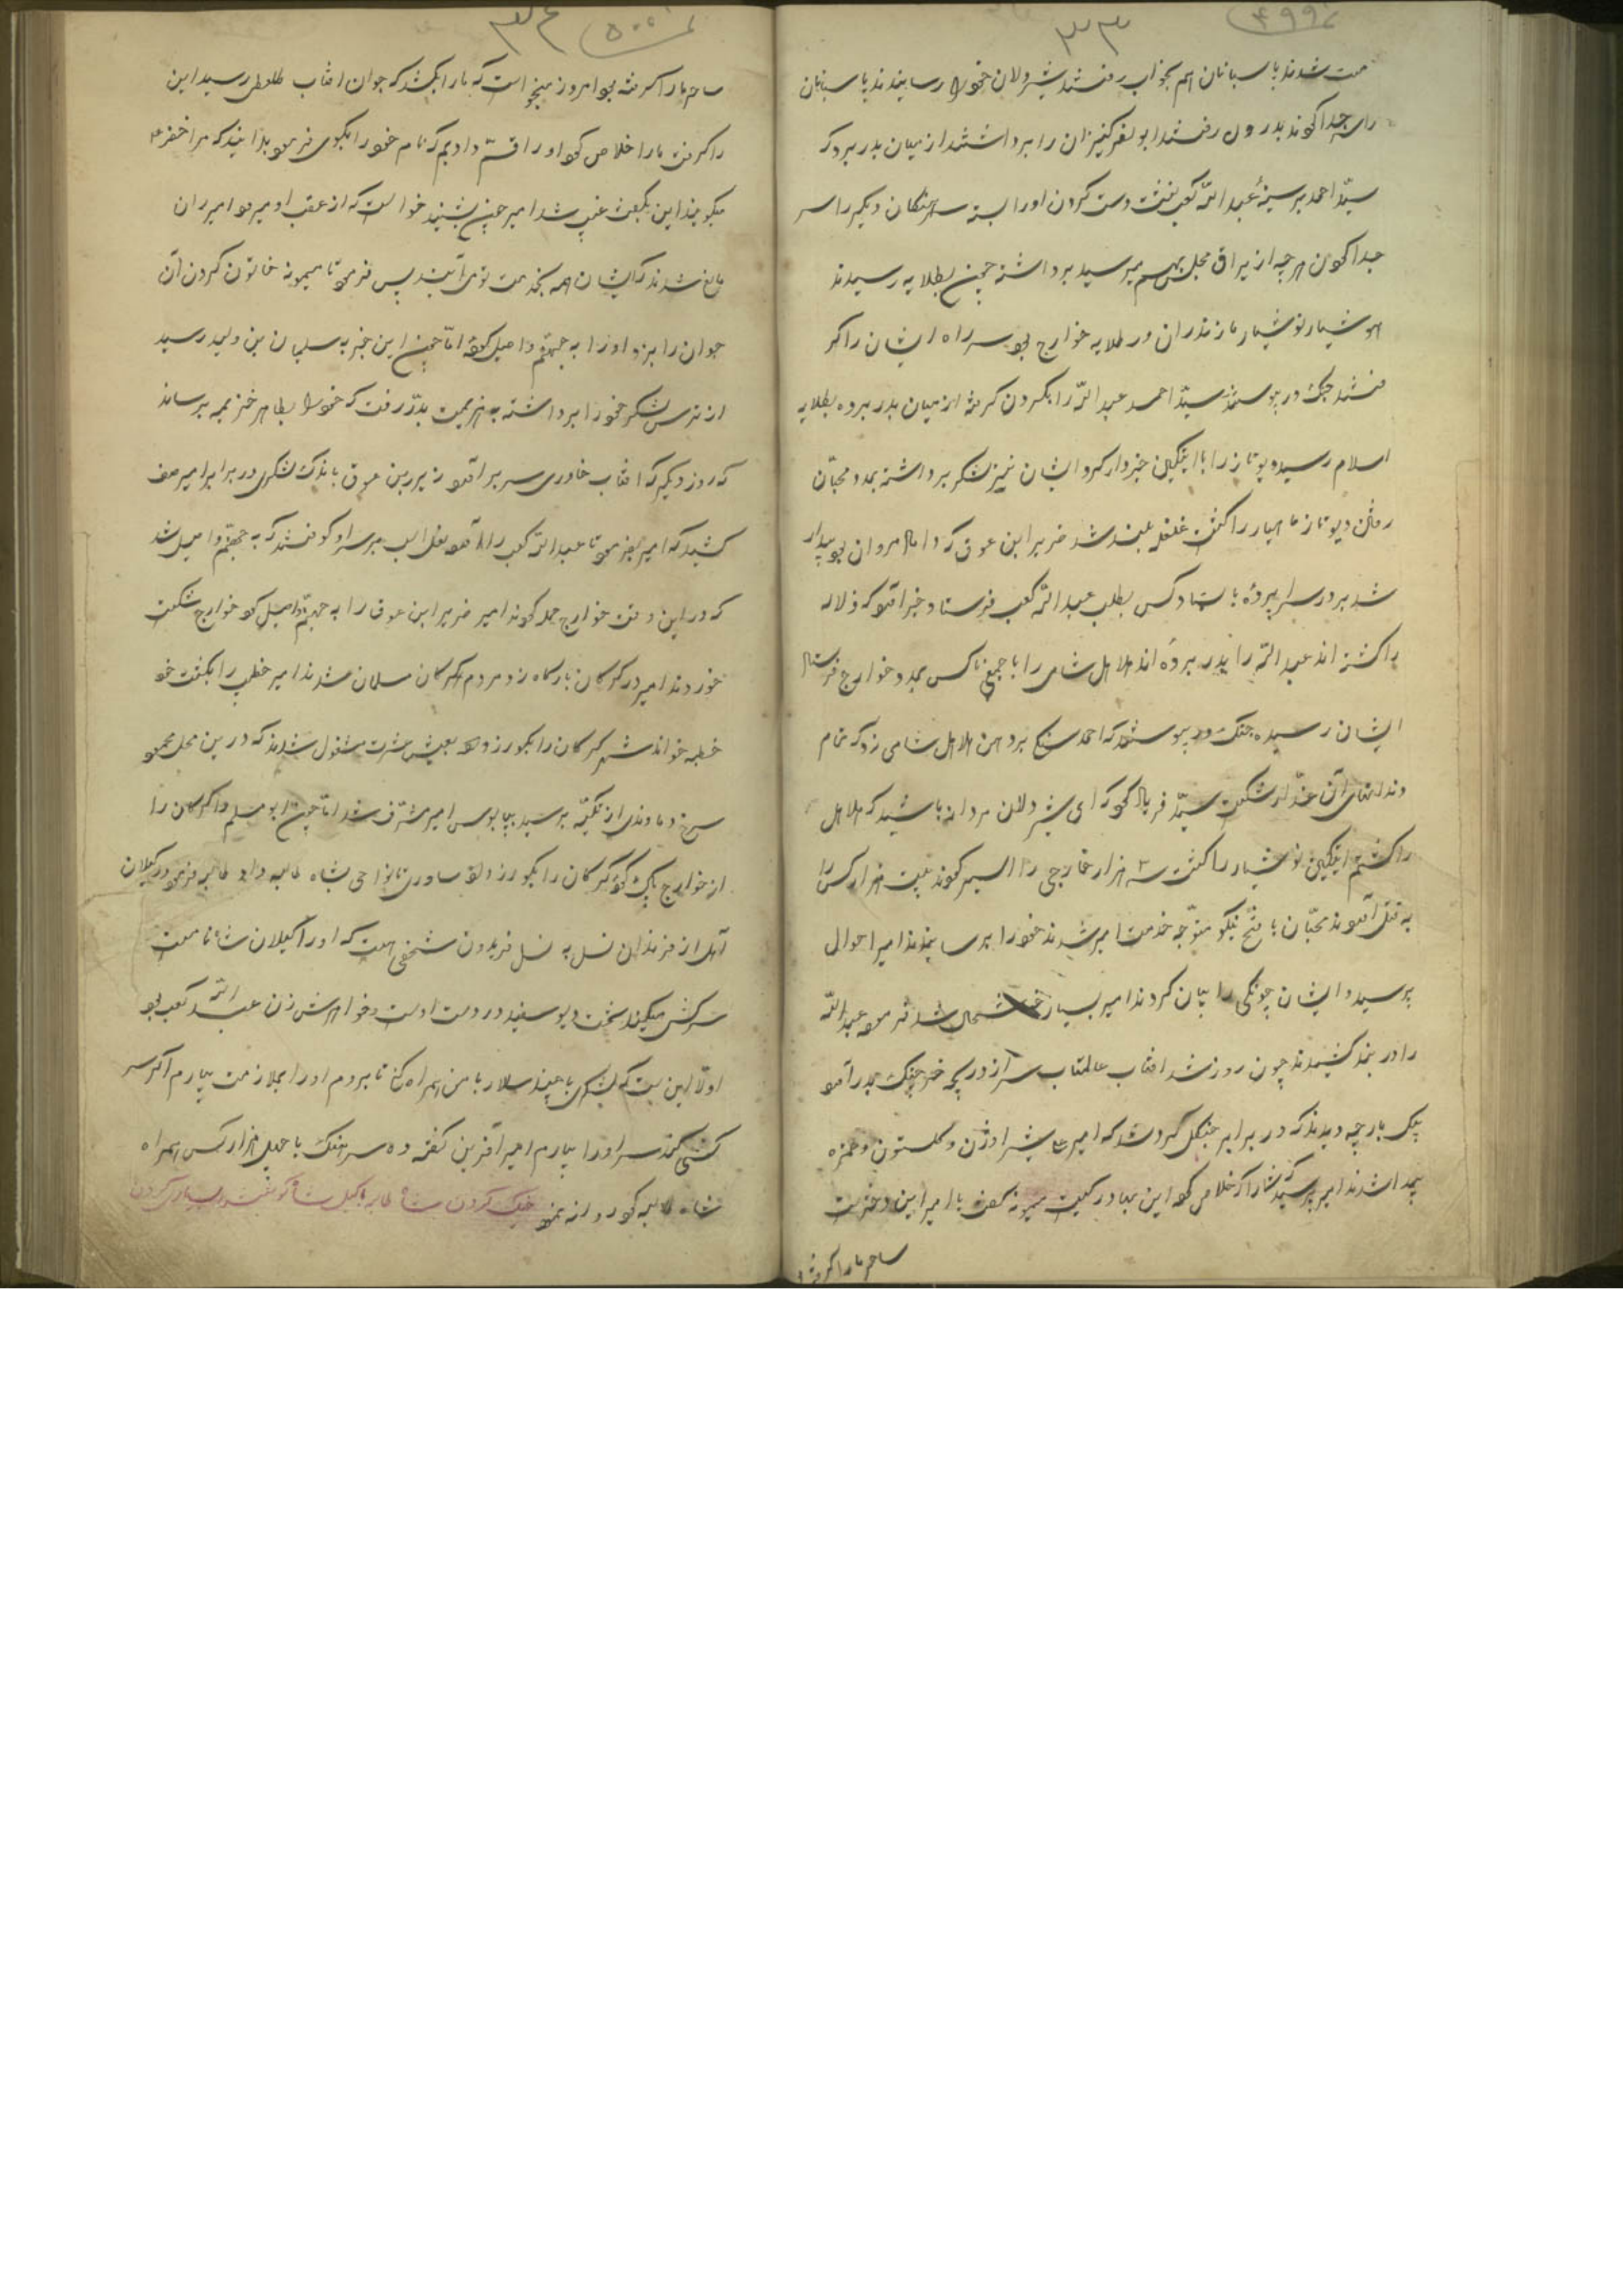 ۴۹۹
۳۳
مست شدند پاسبانان هم بخواب رفتند شیردلان خود را رسانیدند پاسبانان
را سر جدا کردند بدرون رفتند ابو لفر کنیزان را برداشتند از میان بدر برد که
سیّد احمد بر سینهٔ عبد الله کعب نشست دست کردن اورا بسته سرهنگان دیگر را سر
جدا کردن هرچه از یراق مجلس بهم میرسید برداشته چون بطلایه رسیدند
هوشیار نوشیار مازندران در طلایه خوارج بود سر راه ایشان را گر
فتند جنک در پیوستند سیّد احمد عبد الله را بگردن گرفته از میان بدر برده بطلایه
اسلام رسید و پوتاز را با ایتکین خبردار کرد ایشان نیز لشکر برداشته بمدد محبّان
رفتن دیوتاز ماهیار را کشت غلغله بلند شد ضریر ابن عوق که داماد مروان بود بیدار
شد بر در سراپرده باستاد کس بطلب عبد الله کعب فرستاد خبر آمد که دلاله
را کشته اند عبد الله را بدر برده اند هلاهل شامی را با جمعی ناکس بمدد خوارج فرستاد
ایشان رسیده جنک در پیوستند که احمد سنگی بر دهن هلاهل شامی زد که تمام
دندانهای آن غدّار شکست سیّد فریاد کرد که ای شیردلان مردانه باشید که هلاهل
را کشتم ایتکین نوشیار را کشت سه هزار خارجی را اسیر کردند بیست هزار کس را
به قتل آوردند محبّان با فتح نیکو متوجّه خدمت امیر شدند خود را برسانیدند امیر احوال
پرسید و ایشان چونکی را بیان کردند امیر بسیار خوشحال شد فرمود عبد الله
را در بند کشیدند چون روز شد افتاب عالمتاب سر از دریچه خرچنک بدر آمد
پیک پارچه دیدند که در برابر جنگل گرد شد که امیر علی شیر اوژن و کلستون و حمزه
پیدا شدند امیر پرسید که شمارا که خلاص کرد این بهادر کیست میمونه گفت یا امیر این دختریست
ساحر مارا گرفته
۵۰۰
۳۴
ساحر مارا گرفته بود امروز میخواست که مارا بکشد که جوان افتاب طلعتی رسید این
را گرفت مارا خلاص کرد اورا قسم دادیم که نام خود را بگوی فرمود بدانید که مرا خضر
میگویند این بگفت غیب شد امیر چون بشنید خواست که از عقب او میرود امیران
مانع شدند که ایشان همه بخدمت تو می آیند پس فرمود تا میمونه خاتون گردن آن
جوان را بزد اورا به جهنّم واصل کرد امّا چون این خبر به سلیمان بن ولید رسید
از ترس لشکر خود را برداشته به هزیمت بدر رفت که خود را بطاهر خزیمه برساند
که روز دیگر که افتاب خاوری سر بر آورد ضریر بن عوق باندک لشکری در برابر امیر صف
کشید که امیر فرمود تا عبد الله کعب را آورده نعل اسب بر سر او کوفتند که به جهنّم واصل شد
که در این وقت خوارج حمله کردند امیر ضریر ابن عوق را به جهنّم واصل کرد خوارج شکست
خوردند امیر در کرکان بارگاه زد مردم کرکان مسلمان شدند امیر خطیب را بگفت خو
خطبه خواند شهر کرکان را بکورزد داد بعیش عشرت مشغول شدند که در این محل محمود
سرخ دماوندی از تکیه برسید بپابوس امیر مشرّف شد امّا چون ابو مسلم کرکان را
از خوارج پاک کرد کرکان را بکورزد داد ساری تا نواحی بشاه طالبه داد طالبه فرمود در گیلان
آمل از فرزندان نسل به نسل فریدون شخصی هست که اورا گیلان شاه نامست
سرکشی میکند سخت دیو سفید در دست اوست و خواهرش زن عبد الله کعب بود
اولا این ست که لشکری با چند سالار با من همراه کن تا بروم اورا بملازمت بیارم اگر سر
کشی کند سر اورا بیارم امیر آفرین گفته ده سرهنک با چهل هزار کس همراه
شاه طالبه کرد روانه نمود جنک کردن شاه طالبه با گیل شاه